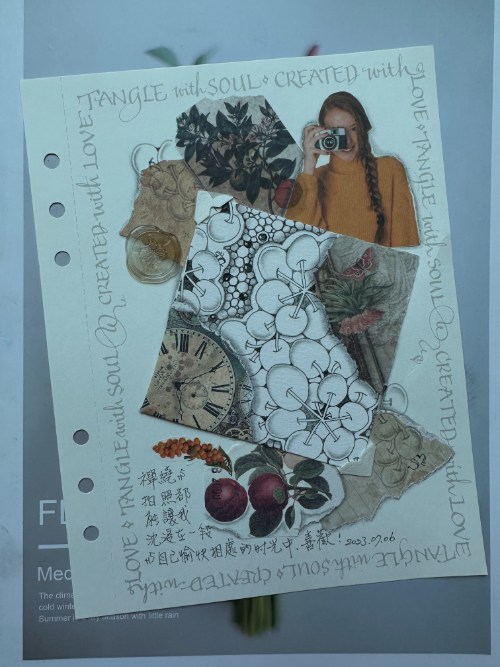 TANGLE with SOUL CREATED with LOVE TANGLE with SOUL CREATED with LOVE
TANGLE with SOUL CREATED with
LOVE TANGLE with SOUL
CREATED with LOVE
禪繞与
拍照都
能讓我
沈浸在一段
与自己愉快相處的时光中.喜歡! 2023.09.06
Med
The clima
cold winte
Summer is
season with little rain